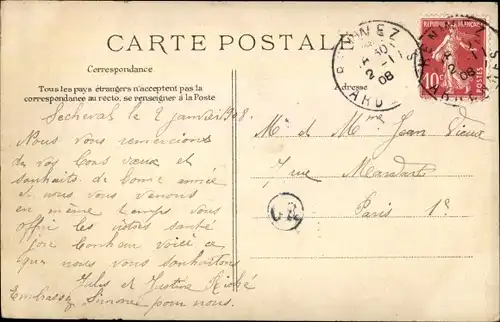 CARTE POSTALE
Correspondance
Tous les pays étrangers n'acceptent pas la
correspondance au recto, se renseigner à la Poste
Secheval le 2 janvier 1908.
Nous vous remercions
de vos bons vœux et
souhaits de bonne année
et nous vous venons
en même temps vous
offrir les votres santé
joie bonheur voilà ce
que nous vous souhaitons
Jules et Justine
Embrassez Simone pour nous.
Adresse
Mr et Mme Jean Vieux
7 rue Mandar
Paris 1e
RENWEZ
2 - 1
08
ARD
REPUBLIQUE FRANÇAISE
10c
POSTES
RENWEZ
2 - 1
08